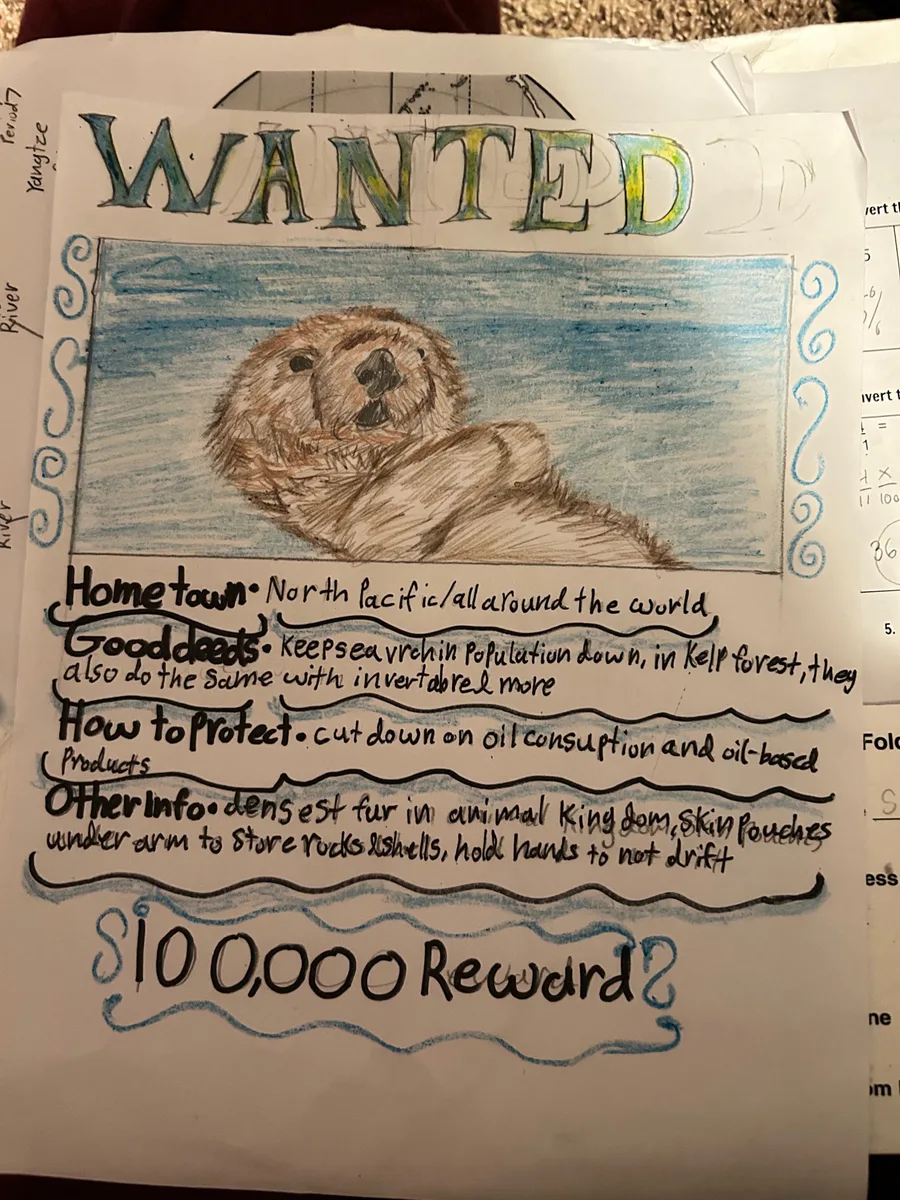 Period 7
Yangtze
River
River
WANTED
Hometown • North Pacific/all around the world
Good deeds • keep sea vrchin population down, in kelp forest, they
also do the same with invertabred more
How to protect • cut down on oil consuption and oil-based
Products
Other Info • densest fur in animal kingdom, skin pouches
under arm to store rocks & shells, hold hands to not drift
$100,000 Reward
vert th
5
vert t
=
1
x
11 100
36
5.
Fold
S
ess
ne
om